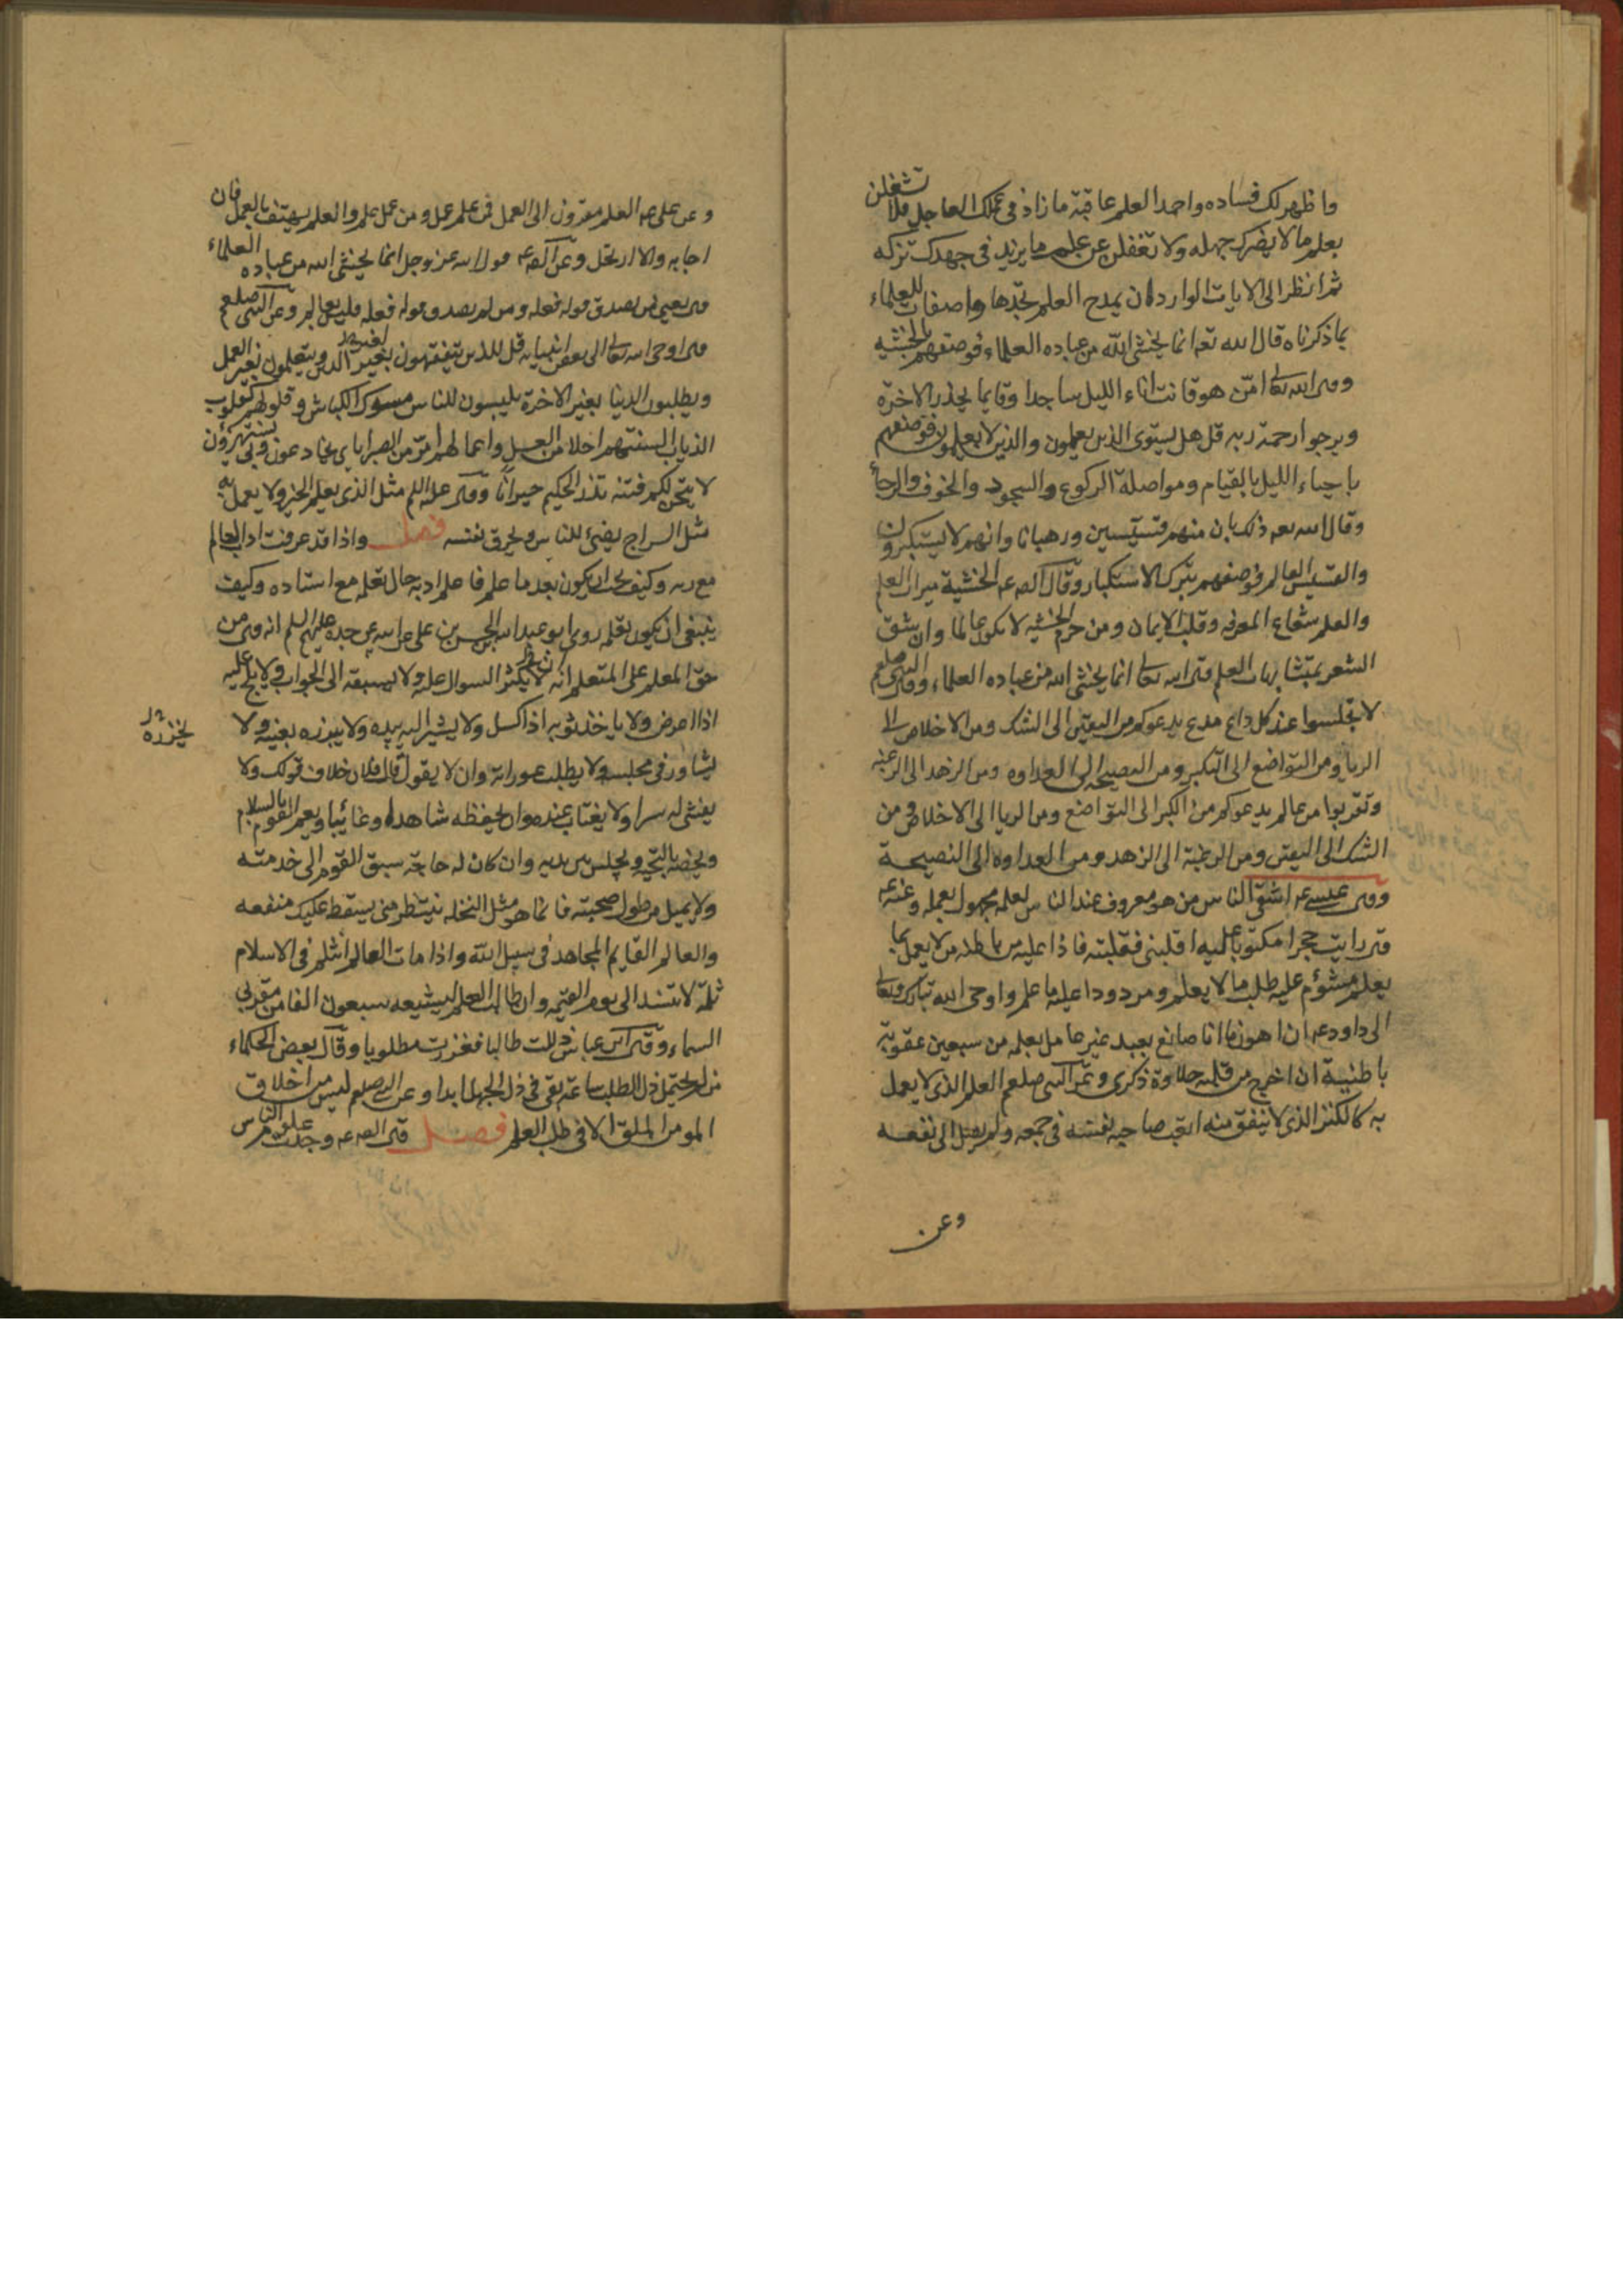 واظهر لك فساده واحمد العلم عاقبة ما زاد في عملك العاجل فلا تشغلن
بعلم ما لا يضرك جهله ولا تغفلن عن علم ما يزيد في جهدك تركه
ثم انظر الى الايات الوارده ان يمدح العلم تجدها واصفات للعلماء
بما ذكرناه قال الله تعه انما يخشى الله من عباده العلماء فوصفهم بالخشيه
وقى الله تعالى امّن هو قانت اناء الليل ساجدا وقايما يحذر الاخرة
ويرجوا رحمة ربه قل هل يستوى الذين يعلمون والذين لا يعلمون فوصفهم
باحياء الليل بالقيام ومواصلة الركوع والسجود والخوف والرجأ
وقال الله تعه ذلك بان منهم قسيسين ورهبانا وانهم لا يستكبرون
والقسيس العالم فوصفهم بترك الاستكبار وقال الصه عه الخشية ميراث العلم
والعلم شعاع المعرفه وقلب الايمان ومن حرم الخشيه لا يكون عالما وان شق
الشعر بمتشابهات العلم قى الله تعالى انما يخشى الله من عباده العلماء وقى النبى صلعم
لا تجلسوا عند كل داع مدع يدعوكم من اليقين الى الشك ومن الاخلاص الى
الريا ومن التواضع الى التكبر ومن النصيحه الى العداوه ومن الزهد الى الرغبه
وتقربوا من عالم يدعوكم من الكبر الى التواضع ومن الريا الى الاخلاص ومن
الشك الى اليقين ومن الرغبة الى الزهد ومن العداوه الى النصيحة
وقى عيسى عه اشقى الناس من هو معروف عند الناس بعلمه مجهول بعمله وعنه عه
قى رايت حجرا مكتوبا عليه اقلبنى فقلبته فاذا عليه من باطنه من لا يعمل بما
يعلم مشؤم عليه طلب ما لا يعلم ومردود عليه ما علم واوحى الله تبارك وتعالى
الى داود عه ان اهون ما انا صانع بعبد غير عامل بعلمه من سبعين عقوبة
باطنية ان اخرج من قلبه حلاوة ذكرى وعن النبى صلعم العلم الذى لا يعمل
به كالكنز الذى لا ينفق منه اتعب صاحبه نفسه في جمعه ولم يصل الى نفعه
وعن
وعن على عه العلم مقرون الى العمل فمن علم عمل ومن عمل علم والعلم يهتف بالعمل فان
اجابه والا ارتحل وعن الصه عه قول الله عز وجل انما يخشى الله من عباده العلماء
قى يعنى من يصدق قوله فعله ومن لم يصدق قوله فعله فليس بعالم وعن النبى صلعم
قى اوحى الله تعالى الى بعض انبيايه قل للذين يتفقهون لغير الدين ويتعلمون لغير العمل
ويطلبون الدنيا بغير الاخرة يلبسون للناس مسوك الكباش وقلوبهم كقلوب
الذياب السنتهم احلا من العسل واعمالهم امرّ من الصبر اياى يخادعون وبى يستهزؤن
لا تيحنّ لكم فتنه تذر الحكيم حيرانًا وقى عليه السلم مثل الذى يعلم الخير ولا يعمل به
مثل السراج يضئ للناس ويحرق نفسه فصل واذا قد عرفت اداب العالم
مع ربه وكيف يجب ان يكون بعد ما علم فاعلم ادبه حال تعلمه مع استاده وكيف
ينبغى ان يكون تعلمه روى ابو عبد الله الحسين بن على عن ابيه عن جده عليهم السلم انه قى من
حق المعلم على المتعلم ان لا يكثر السوال عليه ولا يسبقه الى الجواب ولا يلح عليه
اذا اعرض ولا ياخذ ثوبه اذا كسل ولا يشير اليه بيده ولا يغمزه بعينه ولا
يشاور في مجلسه ولا يطلب عوراته وان لا يقول قال فلان خلاف قولك ولا
يفشى له سرا ولا يغتاب عنده وان يحفظه شاهدا وغائبا ويعم القوم بالسلام
ويخصه بالتحيه ويجلس بين يديه وان كان له حاجة سبق القوم الى خدمته
ولا يميل من طول صحبته فانما هو مثل النخله ينتظر متى يسقط عليك منفعه
والعالم القايم المجاهد في سبيل الله واذا مات العالم انثلم في الاسلام
ثلمة لا تنسد الى يوم القيمه وان طالب العلم ليشيعه سبعون الفا من مقربى
السماء وقى ابن عباس ذللت طالبا فعززت مطلوبا وقال بعض الحكماء
من لم يحتمل ذل الطلب ساعة بقى في ذل الجهل ابدا وعن النبى صلعم ليس من اخلاق
المومن الملق الا في طلب العلم فصل قى الصه عه وجدت علوم الناس